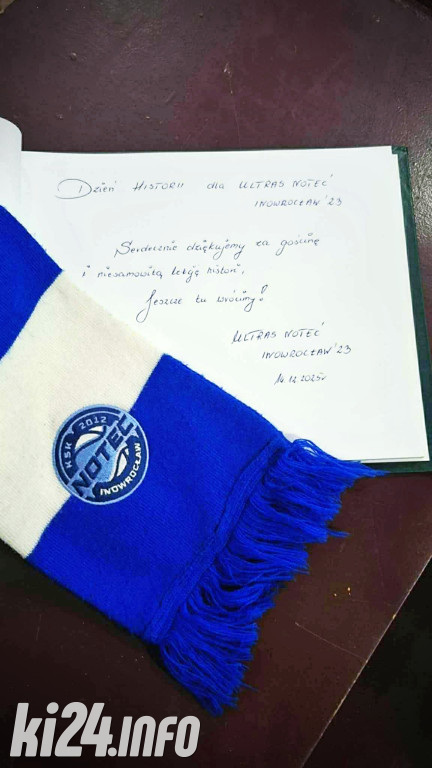 Dzień HISTORII dla ULTRAS NOTEĆ
INOWROCŁAW '23
Serdecznie dziękujemy za gościnę
i niesamowitą lekcję historii,
Jeszcze tu wrócimy!
ULTRAS NOTEĆ
INOWROCŁAW '23
14.12.2025r
KSK 2012
NOTEĆ
INOWROCŁAW
ki24.INFO